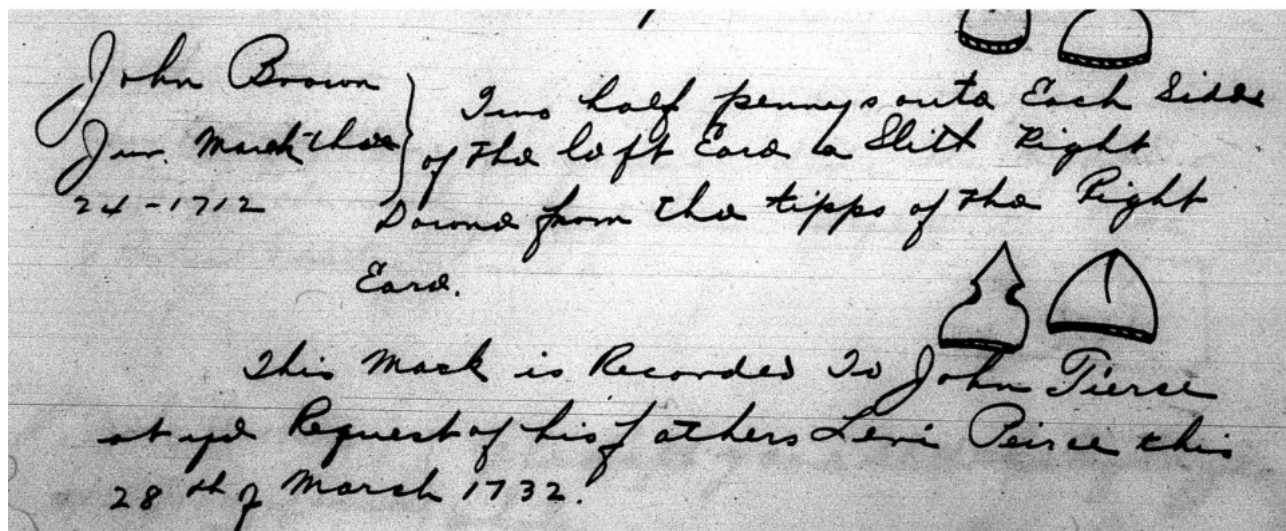 John Brown
Jur. March the
24 - 1712
Two half pennys outa Each Side
of the left Eare a Slitt Right
Downe from the tipps of the Right
Eare.
This Mark is Recorded To John Pierse
at ye Request of his fathers Levi Peirce this
28th of March 1732.